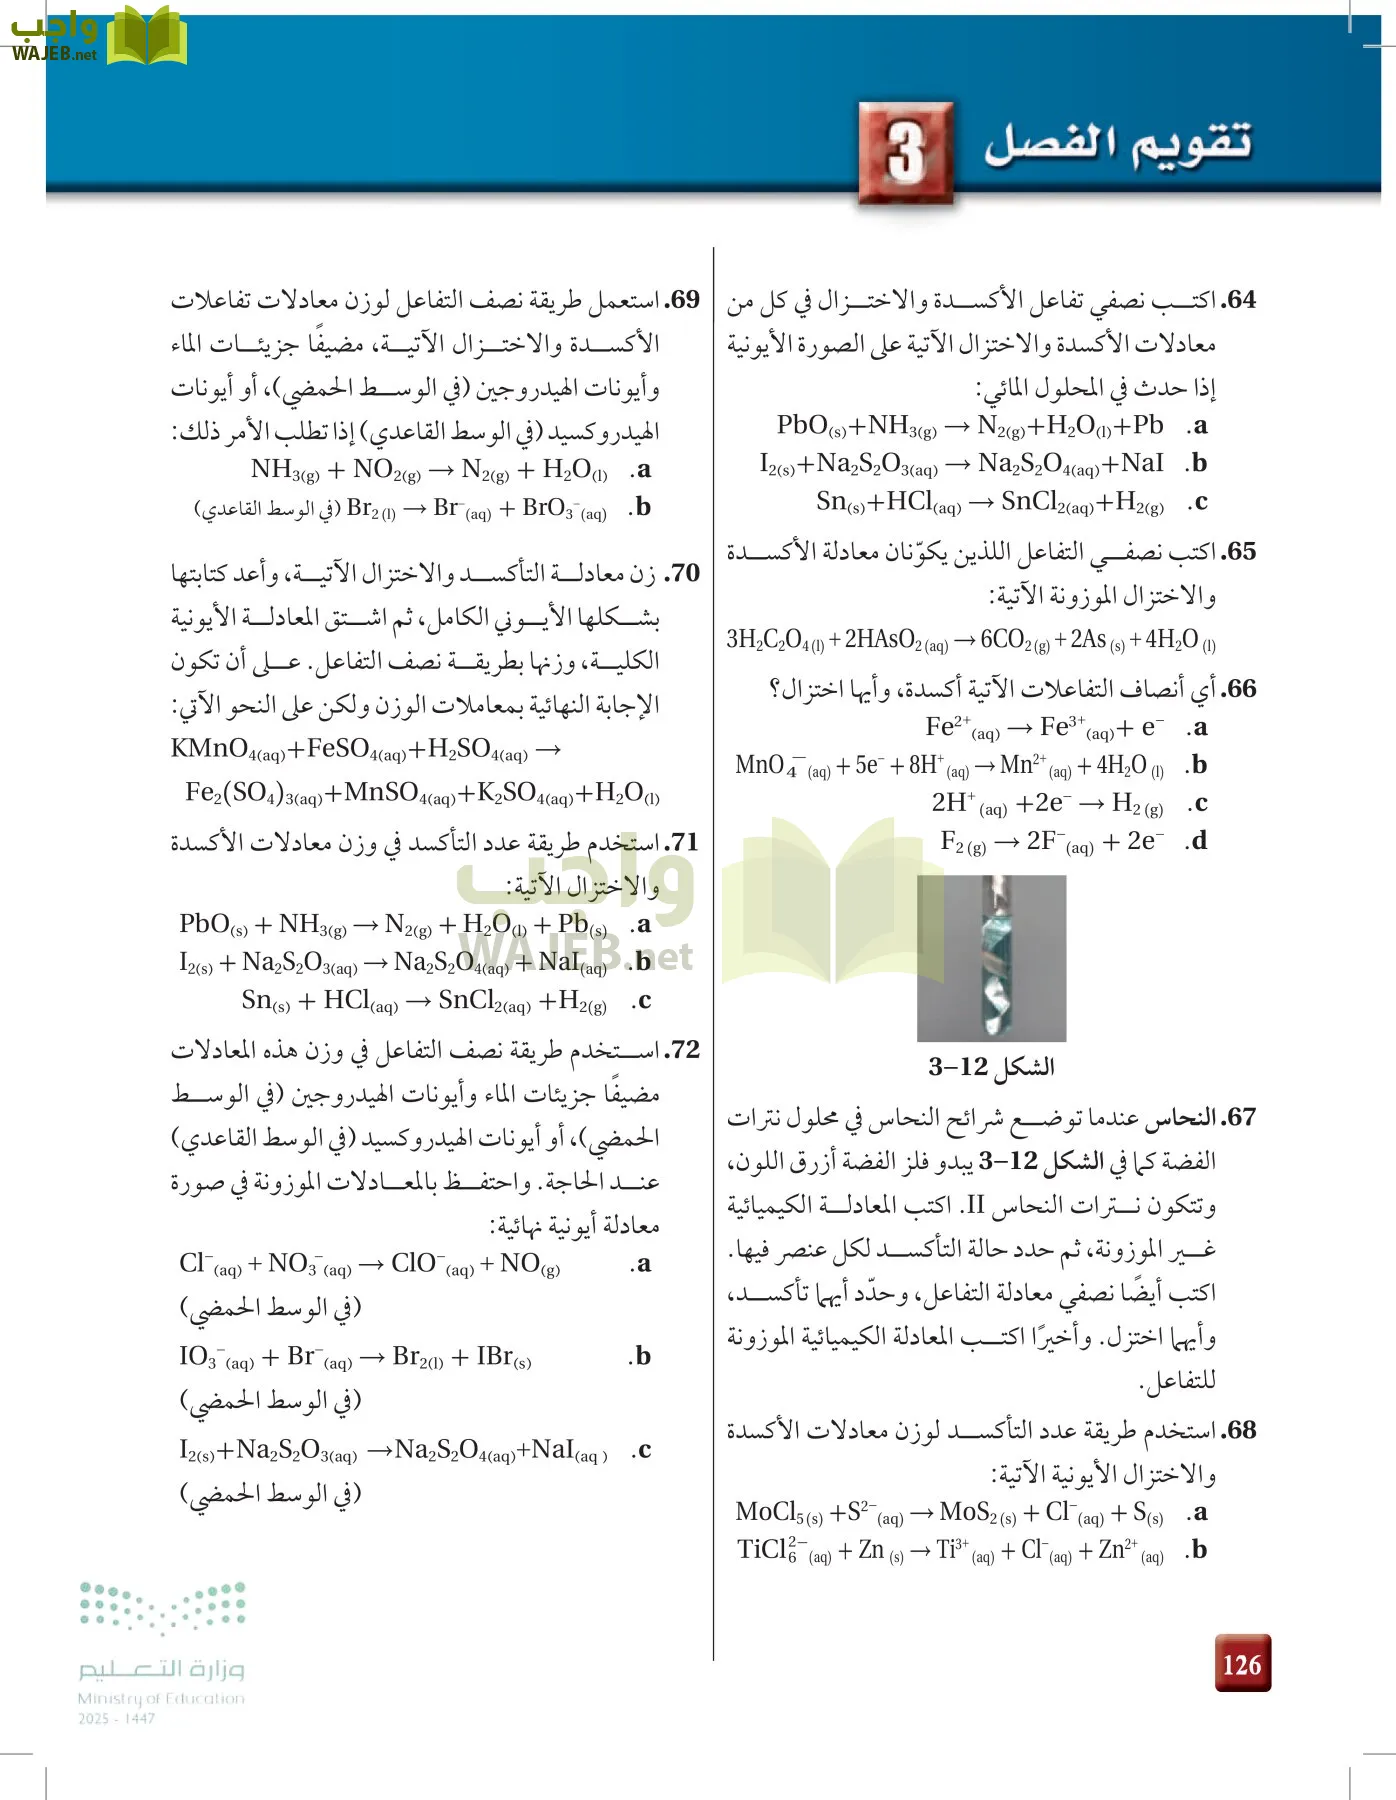 واجب
WAJEB.net
تقويم الفصل 3
64. اكتب نصفي تفاعل الأكسدة والاختزال في كل من
معادلات الأكسدة والاختزال الآتية على الصورة الأيونية
إذا حدث في المحلول المائي:
a. PbO(s)+NH3(g) → N2(g)+H2O(l)+Pb
b. I2(s)+Na2S2O3(aq) → Na2S2O4(aq)+NaI
c. Sn(s)+HCl(aq) → SnCl2(aq)+H2(g)
65. اكتب نصفي التفاعل اللذين يكوّنان معادلة الأكسدة
والاختزال الموزونة الآتية:
3H2C2O4(l) + 2HAsO2(aq) → 6CO2(g) + 2As(s) + 4H2O(l)
66. أي أنصاف التفاعلات الآتية أكسدة، وأيها اختزال؟
a. Fe²⁺(aq) → Fe³⁺(aq)+ e⁻
b. MnO4⁻(aq) + 5e⁻ + 8H⁺(aq) → Mn²⁺(aq) + 4H2O(l)
c. 2H⁺(aq) +2e⁻ → H2(g)
d. F2(g) → 2F⁻(aq) + 2e⁻
الشكل 12–3
67. النحاس عندما توضع شرائح النحاس في محلول نترات
الفضة كما في الشكل 12–3 يبدو فلز الفضة أزرق اللون،
وتتكون نترات النحاس II. اكتب المعادلة الكيميائية
غير الموزونة، ثم حدد حالة التأكسد لكل عنصر فيها.
اكتب أيضًا نصفي معادلة التفاعل، وحدّد أيهما تأكسد،
وأيهما اختزل. وأخيرًا اكتب المعادلة الكيميائية الموزونة
للتفاعل.
68. استخدم طريقة عدد التأكسد لوزن معادلات الأكسدة
والاختزال الأيونية الآتية:
a. MoCl5(s) +S²⁻(aq) → MoS2(s) + Cl⁻(aq) + S(s)
b. TiCl6²⁻(aq) + Zn(s) → Ti³⁺(aq) + Cl⁻(aq) + Zn²⁺(aq)
69. استعمل طريقة نصف التفاعل لوزن معادلات تفاعلات
الأكسدة والاختزال الآتية، مضيفًا جزيئات الماء
وأيونات الهيدروجين (في الوسط الحمضي)، أو أيونات
الهيدروكسيد (في الوسط القاعدي) إذا تطلب الأمر ذلك:
a. NH3(g) + NO2(g) → N2(g) + H2O(l)
b. Br2(l) → Br⁻(aq) + BrO3⁻(aq) (في الوسط القاعدي)
70. زن معادلة التأكسد والاختزال الآتية، وأعد كتابتها
بشكلها الأيوني الكامل، ثم اشتق المعادلة الأيونية
الكلية، وزنها بطريقة نصف التفاعل. على أن تكون
الإجابة النهائية بمعاملات الوزن ولكن على النحو الآتي:
KMnO4(aq)+FeSO4(aq)+H2SO4(aq) →
Fe2(SO4)3(aq)+MnSO4(aq)+K2SO4(aq)+H2O(l)
71. استخدم طريقة عدد التأكسد في وزن معادلات الأكسدة
والاختزال الآتية:
a. PbO(s) + NH3(g) → N2(g) + H2O(l) + Pb(s)
b. I2(s) + Na2S2O3(aq) → Na2S2O4(aq) + NaI(aq)
c. Sn(s) + HCl(aq) → SnCl2(aq) +H2(g)
72. استخدم طريقة نصف التفاعل في وزن هذه المعادلات
مضيفًا جزيئات الماء وأيونات الهيدروجين (في الوسط
الحمضي)، أو أيونات الهيدروكسيد (في الوسط القاعدي)
عند الحاجة. واحتفظ بالمعادلات الموزونة في صورة
معادلة أيونية نهائية:
a. Cl⁻(aq) + NO3⁻(aq) → ClO⁻(aq) + NO(g)
(في الوسط الحمضي)
b. IO3⁻(aq) + Br⁻(aq) → Br2(l) + IBr(s)
(في الوسط الحمضي)
c. I2(s)+Na2S2O3(aq) →Na2S2O4(aq)+NaI(aq)
(في الوسط الحمضي)
واجب
WAJEB.net
وزارة التعليم
Ministry of Education
2025 - 1447
126